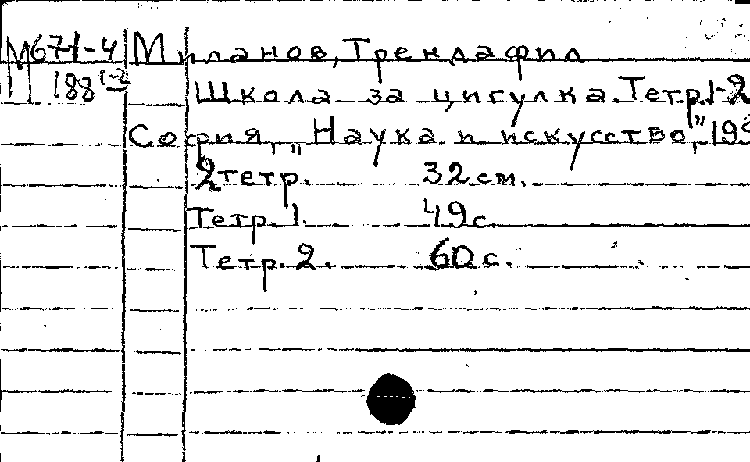 М671-4 Миланов, Трендафил
188 1-2 Школа за цигулка. Тетр. 1-2
София, "Наука и искусство", 195
2 тетр. 32 см.
Тетр. 1. 49 с.
Тетр. 2. 60 с.